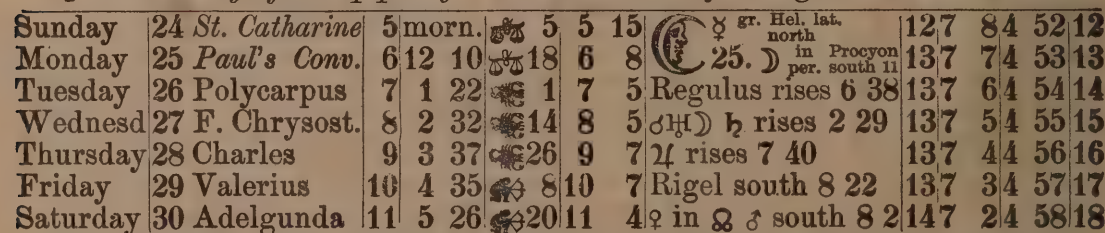 Sunday 24 St. Catharine 5 morn. ♎ 5 5 15 ☿ gr. Hel. lat. north 12 7 8 4 52 12
Monday 25 Paul's Conv. 6 12 10 ♎ 18 6 8 25. ☽ in per. Procyon south 11 13 7 7 4 53 13
Tuesday 26 Polycarpus 7 1 22 ♏ 1 7 5 Regulus rises 6 38 13 7 6 4 54 14
Wednesd 27 F. Chrysost. 8 2 32 ♏ 14 8 5 ☌♅☽ ♄ rises 2 29 13 7 5 4 55 15
Thursday 28 Charles 9 3 37 ♏ 26 9 7 ♃ rises 7 40 13 7 4 4 56 16
Friday 29 Valerius 10 4 35 ♐ 8 10 7 Rigel south 8 22 13 7 3 4 57 17
Saturday 30 Adelgunda 11 5 26 ♐ 20 11 4 ♀ in ☊ ♂ south 8 2 14 7 2 4 58 18